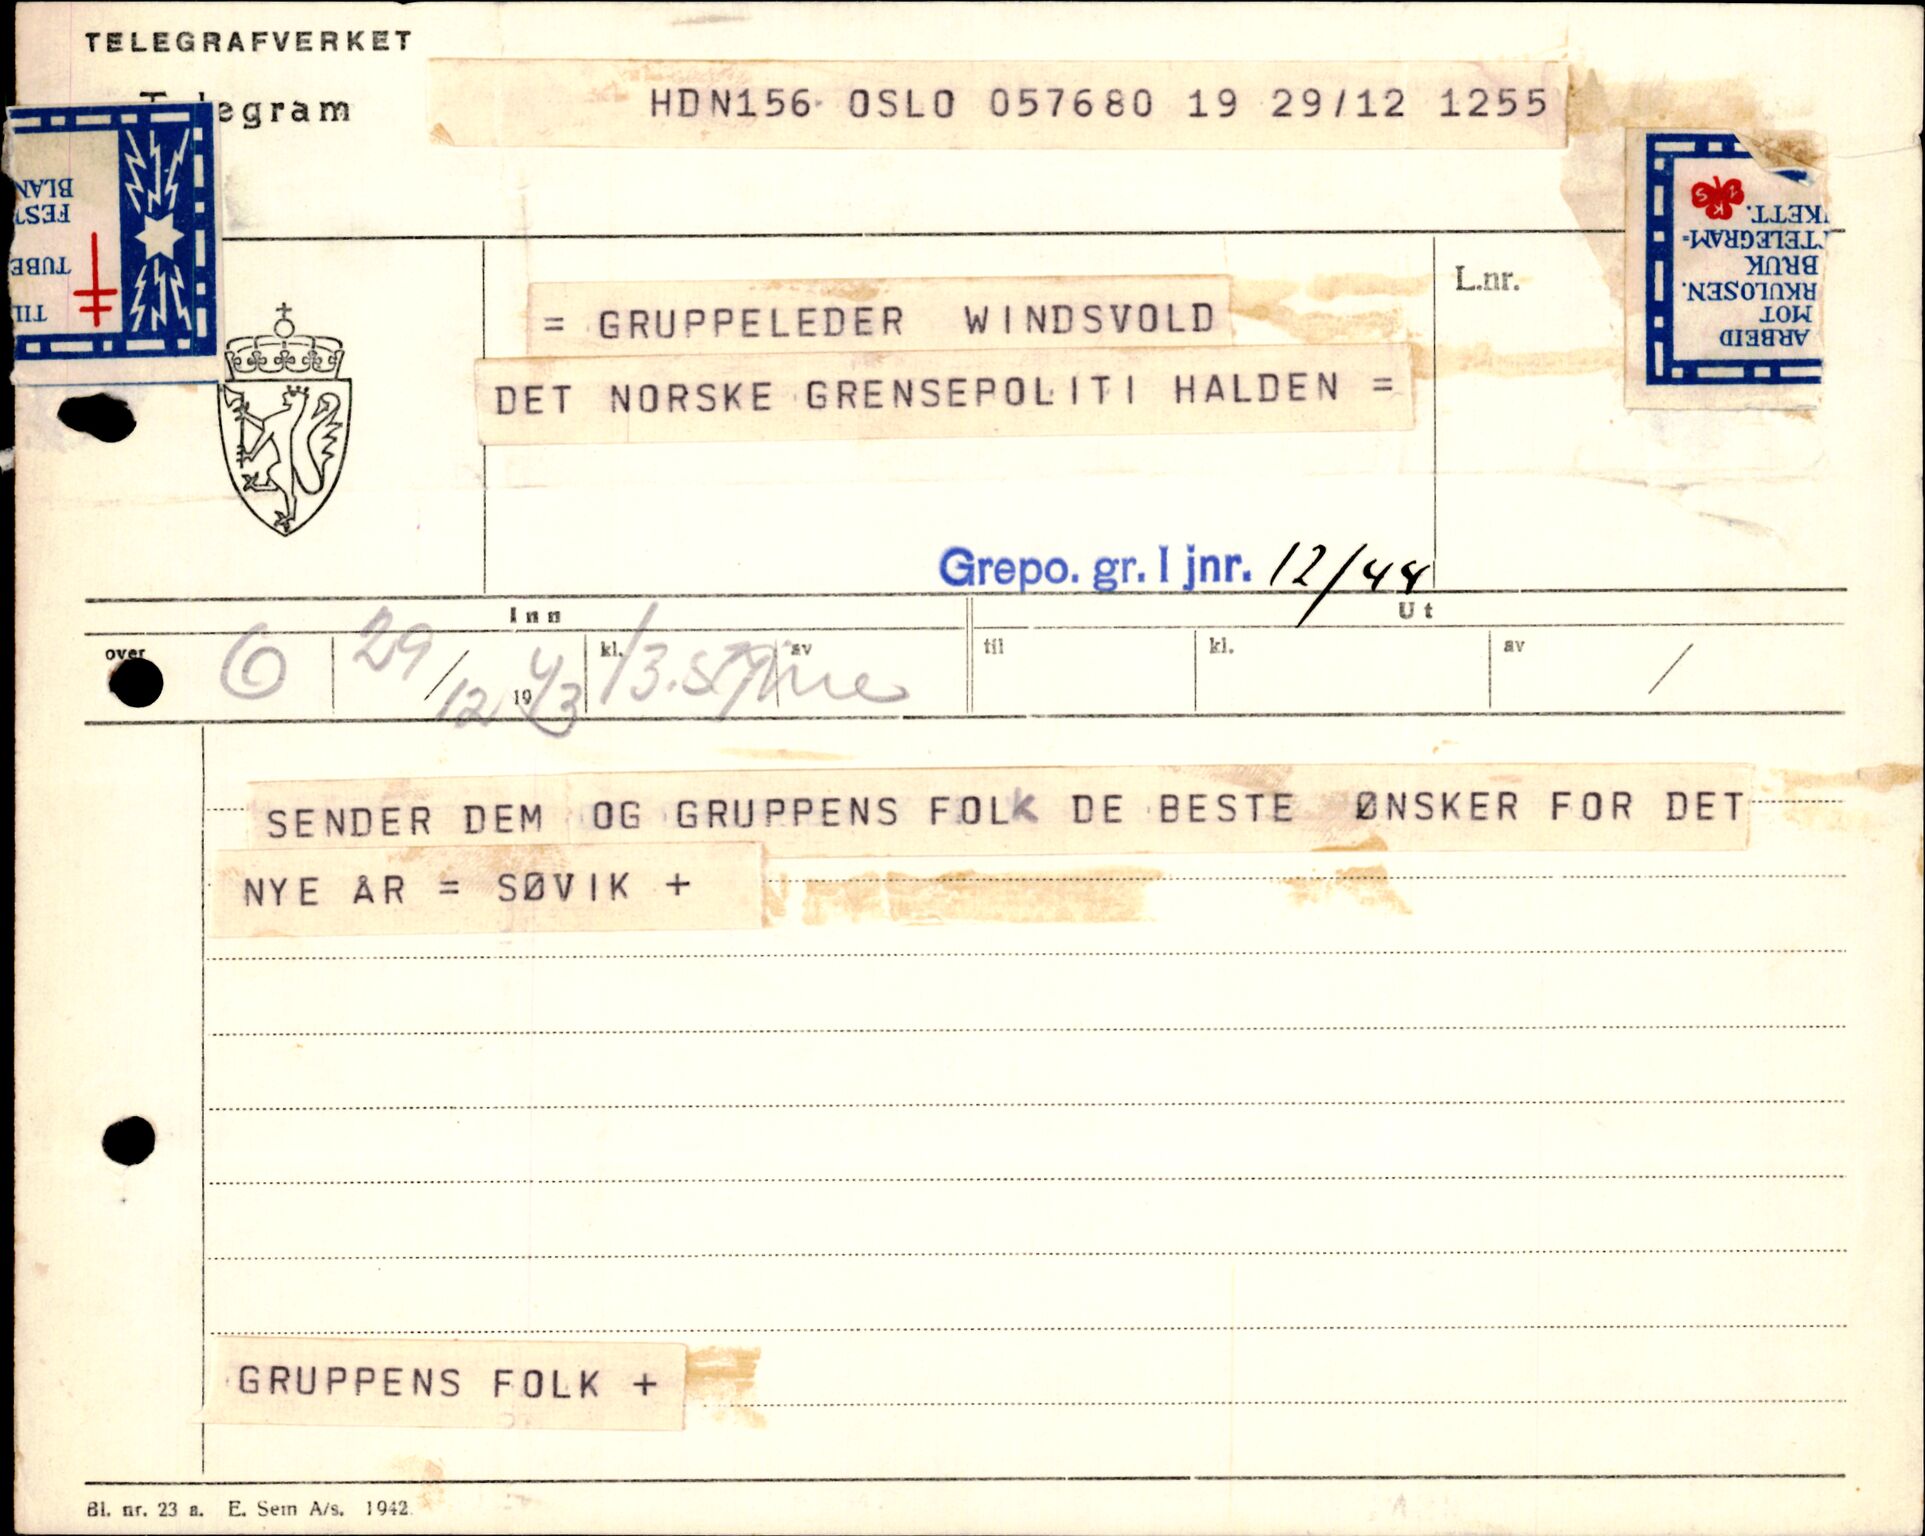 TELEGRAFVERKET
egram
HDN156 OSLO 057680 19 29/12 1255
BLAN
FEST
TUBE
TIL
KETT.
TELEGRAM-
BRUK
RKULOSEN.
MOT
ARBEID
L.nr.
= GRUPPELEDER WINDSVOLD
DET NORSKE GRENSEPOLITI HALDEN =
Grepo. gr. I jnr. 12/44
Inn Ut
over 29/12 1943 kl. av til kl. av
SENDER DEM OG GRUPPENS FOLK DE BESTE ØNSKER FOR DET
NYE ÅR = SØVIK +
GRUPPENS FOLK +
Bl. nr. 23 a. E. Sem A/s. 1942.